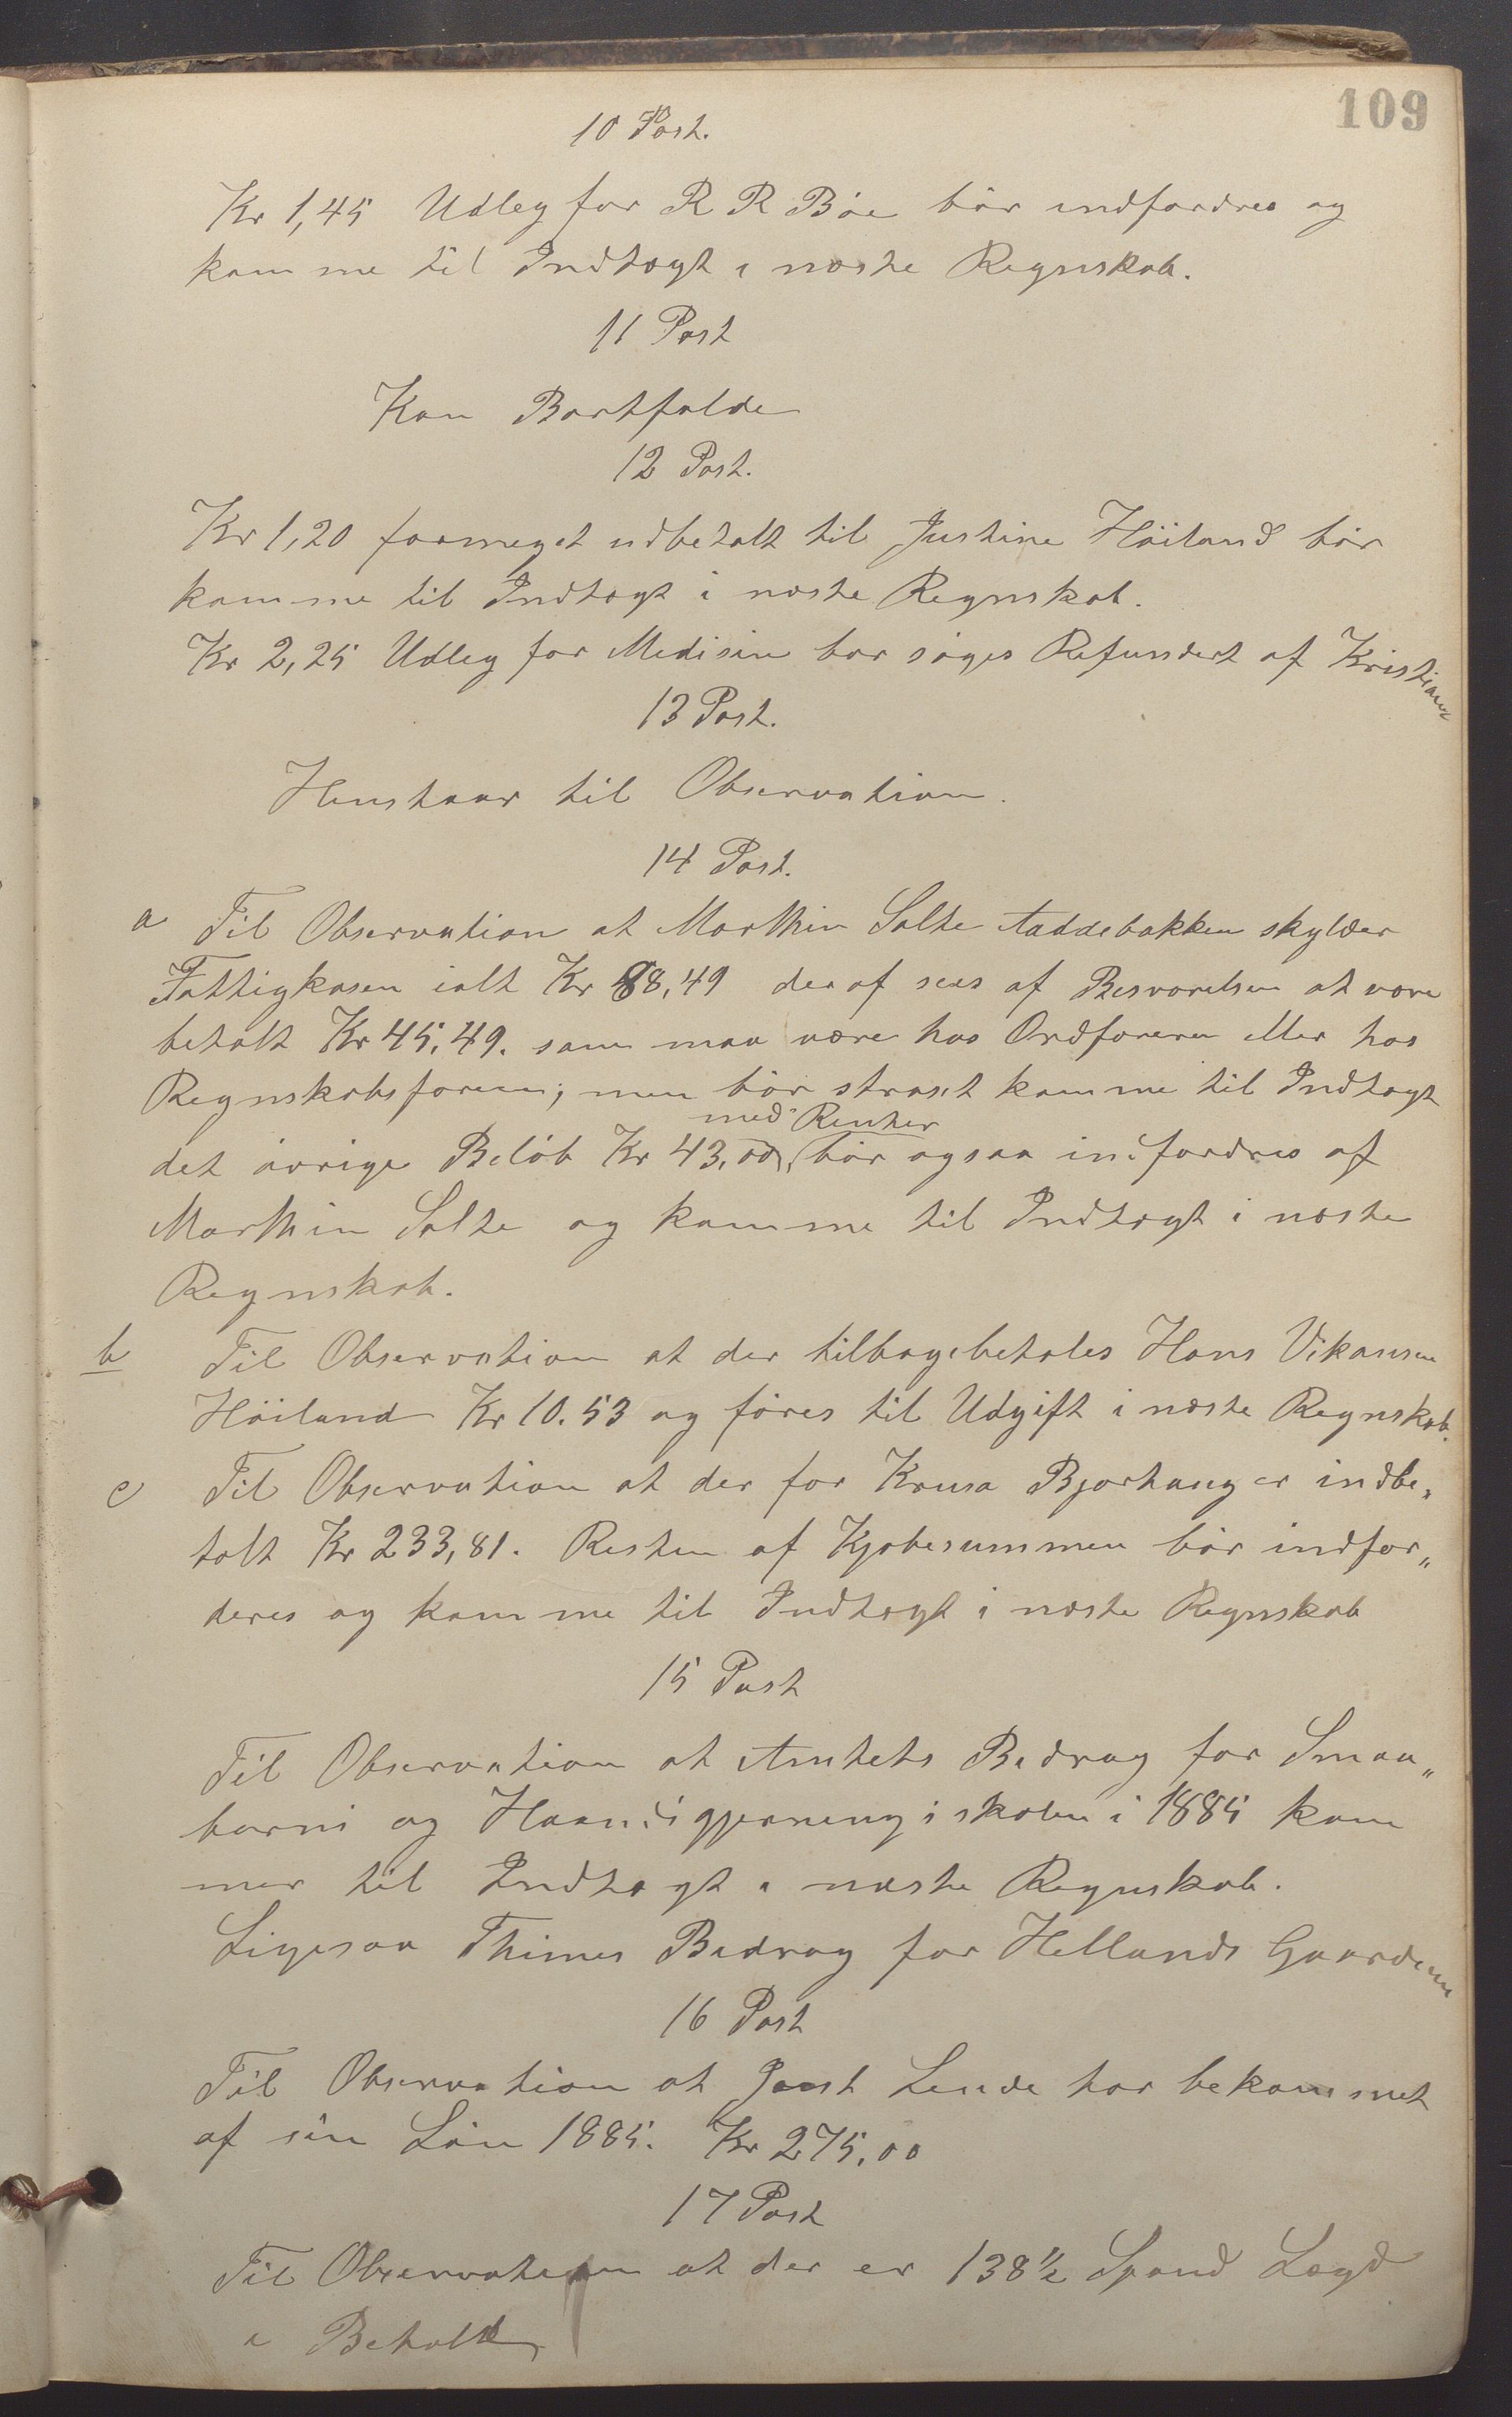 109
10 Post.
Kr 1,45 Udleg for R R Böe bör indfordres og
komme til Indtægt i næste Regnskab.
11 Post
Kan Bortfalde
12 Post.
Kr 1,20 formeget udbetalt til Justine Höiland bör
komme til Indtægt i næste Regnskab.
Kr 2,25 Udleg for Medisin bör söges Refundert af Kristians
13 Post.
Henstaar til Observation.
14 Post.
a Til Observation at Marthin Salte Aaddebakken skylder
Fattigkasen ialt Kr 88,49 deraf sees af Besvarelsen at være
betalt Kr 45,49. som maa være hos Ordföreren eller hos
Regnskabsföreren; men bör straxt komme til Indtægt
med Renter
det övrige Belöb Kr 43,00, bör ogsaa indfordres af
Marthin Salte og komme til Indtægt i næste
Regnskab.
b Til Observation at der tilbagebetales Hans Vikansen
Höiland Kr 10.53 og föres til Udgift i næste Regnskab.
c Til Observation at der for Krusa Bjorhaug er indbe„
talt Kr 233,81. Resten af Kjöbesummen bör indfor„
deres og komme til Indtægt i næste Regnskab
15 Post
Til Observation at Amtets Bidrag for Smaa„
barns og Haandgjerningsskolen i 1885 kom
mer til Indtægt i næste Regnskab.
Ligesaa Thimes Bidrag for Hellands Gaardene
16 Post
Til Observation at Joost Lende har bekommet
af sin Lön 1885. Kr 275,00
17 Post
Til Observation at der er 138½ Spand Lægd
i Behold